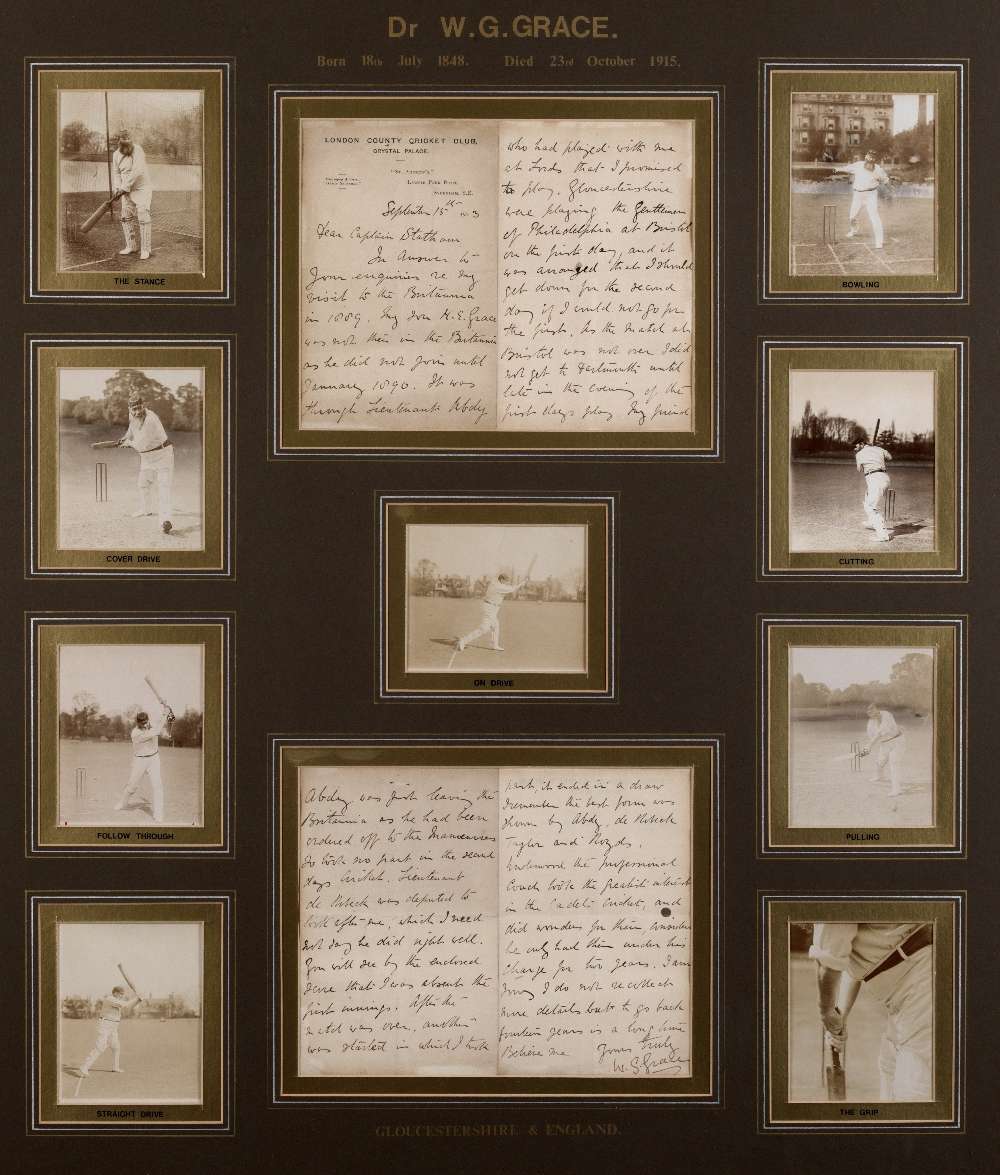 Dr W.G. GRACE.
Born 18th July 1848. Died 23rd October 1915.
THE STANCE
COVER DRIVE
FOLLOW THROUGH
STRAIGHT DRIVE
LONDON COUNTY CRICKET CLUB,
CRYSTAL PALACE.
LAWRIE PARK ROAD,
SYDENHAM, S.E.
September 15th
Dear Captain Statham
In Answer to
Your enquiries re my
visit to the Britannia
in 1889. My Son H.E. Grace
was not then in the Britannia
as he did not join until
January 1890. It was
through Lieutenant Abdy
who had played with me
at Lords that I promised
to play. Gloucestershire
were playing the Gentlemen
of Philadelphia at Bristol
on the first day, and it
was arranged that I should
get down for the second
day if I could not go for
the first. As the match at
Bristol was not over I did
not get to Dartmouth until
late in the evening of the
first days play. My friend
ON DRIVE
Abdy was just leaving the
Britannia as he had been
ordered off to the Manœuvres
so took no part in the second
days Cricket. Lieutenant
de was deputed to
look after me, which I need
not say he did right well.
You will see by the enclosed
score that I was absent the
first innings. After the
match was over, another
was started in which I took
part, it ended in a draw
I remember the best form was
shown by Abdy, de
Taylor and
Underwood the Professional
Coach took the greatest interest
in the Cadets Cricket, and
did wonders for them, considering
he only had them under his
charge for two years. I am
sorry I do not recollect
more details but to go back
fourteen years is a long time
Believe me Yours truly
W. G. Grace
BOWLING
CUTTING
PULLING
THE GRIP
GLOUCESTERSHIRE & ENGLAND.